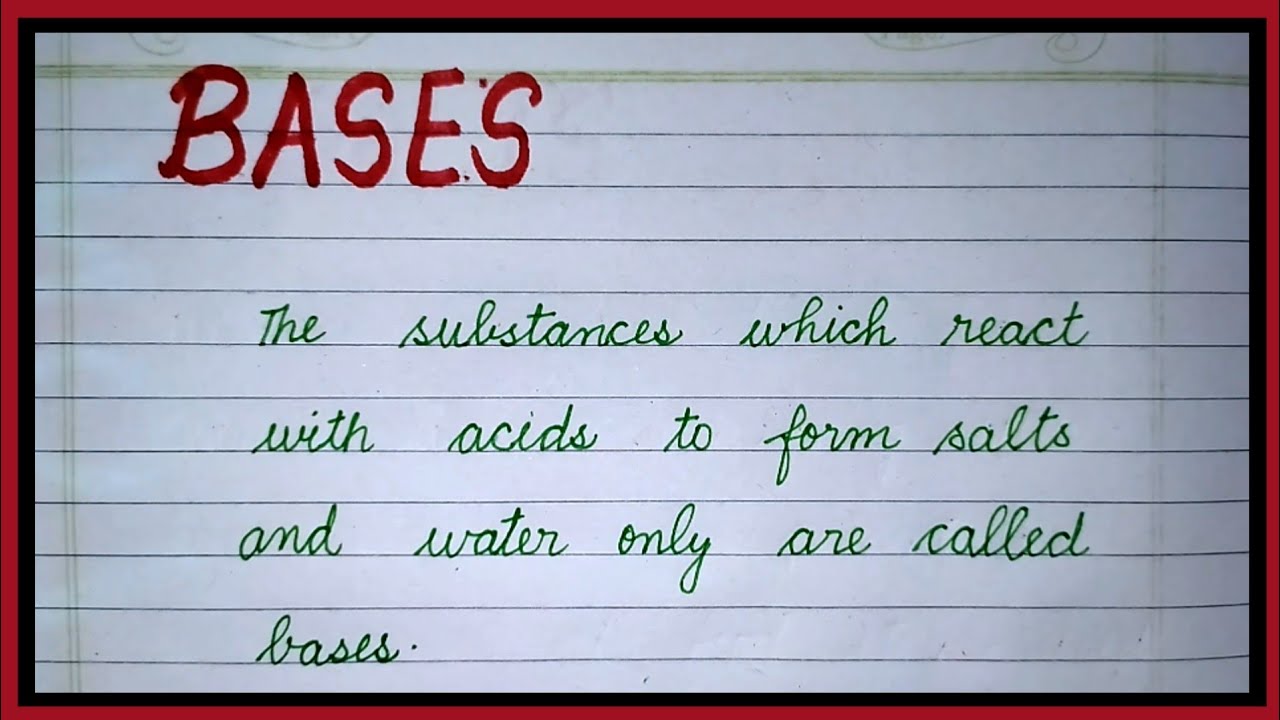 BASES
The substances which react
with acids to form salts
and water only are called
bases.